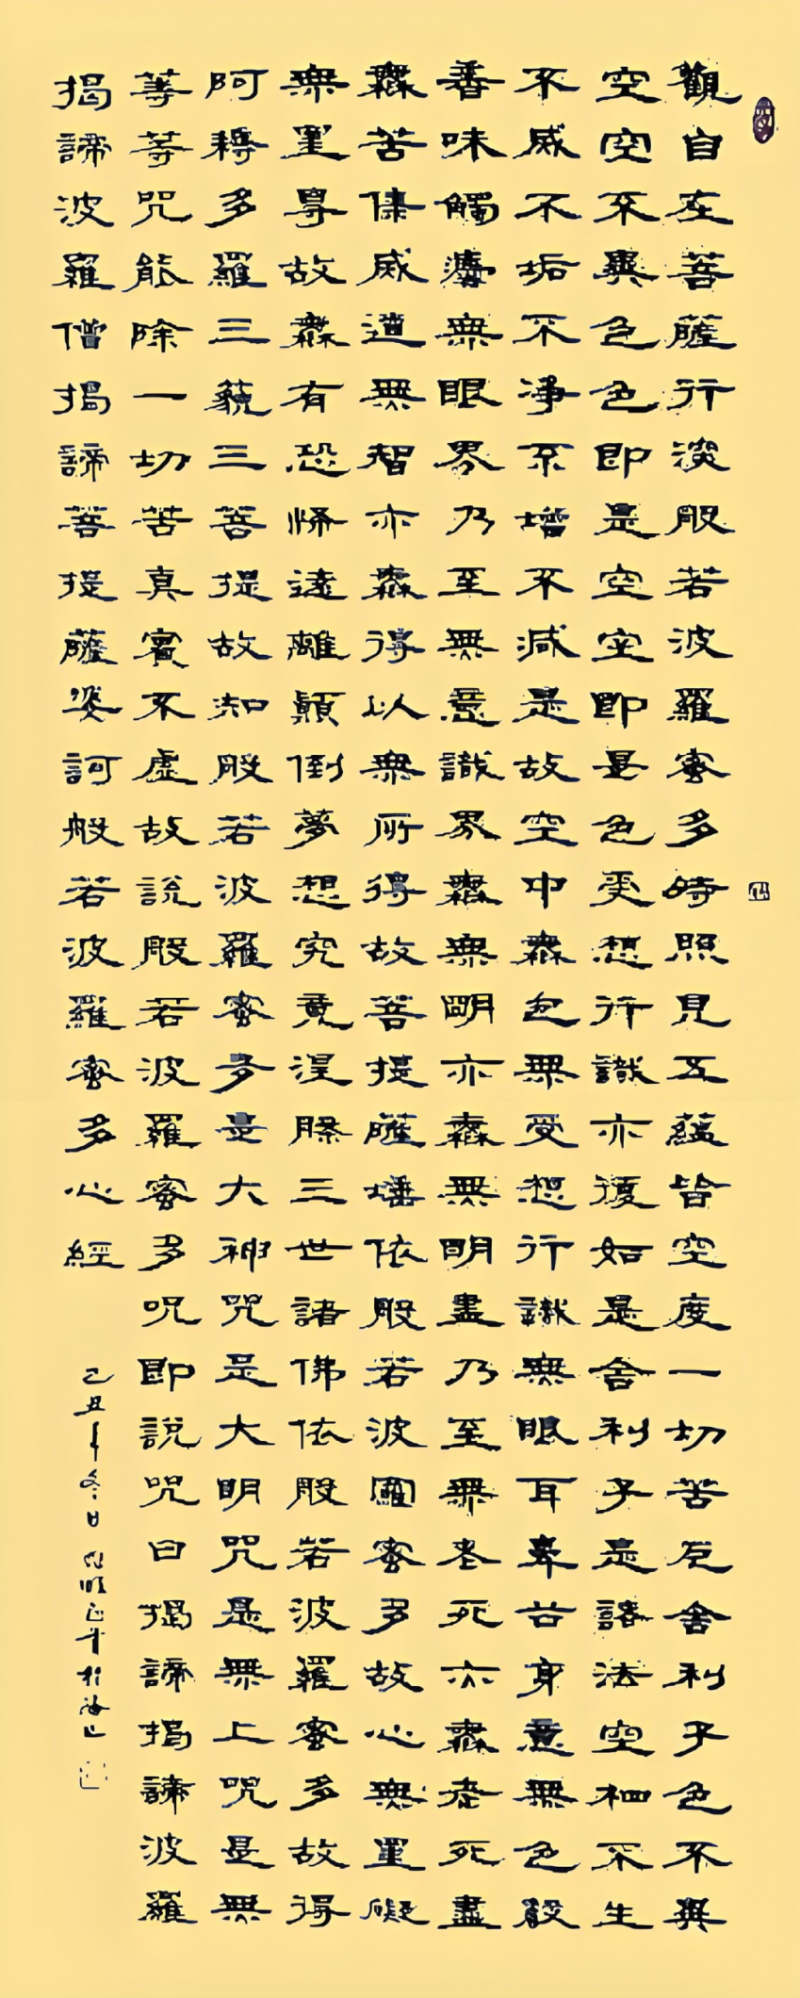 觀自在菩薩行深般若波羅蜜多時照見五蘊皆空度一切苦厄舍利子色不異
空空不異色色即是空空即是色受想行識亦復如是舍利子是諸法空相不生
不滅不垢不淨不增不減是故空中無色無受想行識無眼耳鼻舌身意無色聲
香味觸法無眼界乃至無意識界無無明亦無無明盡乃至無老死亦無老死盡
無苦集滅道無智亦無得以無所得故菩提薩埵依般若波羅蜜多故心無罣礙
無罣礙故無有恐怖遠離顛倒夢想究竟涅槃三世諸佛依般若波羅蜜多故得
阿耨多羅三藐三菩提故知般若波羅蜜多是大神咒是大明咒是無上咒是無
等等咒能除一切苦真實不虛故說般若波羅蜜多呪即說咒曰揭諦揭諦波羅
揭諦波羅僧揭諦菩提薩婆訶般若波羅蜜多心經
己丑年冬日